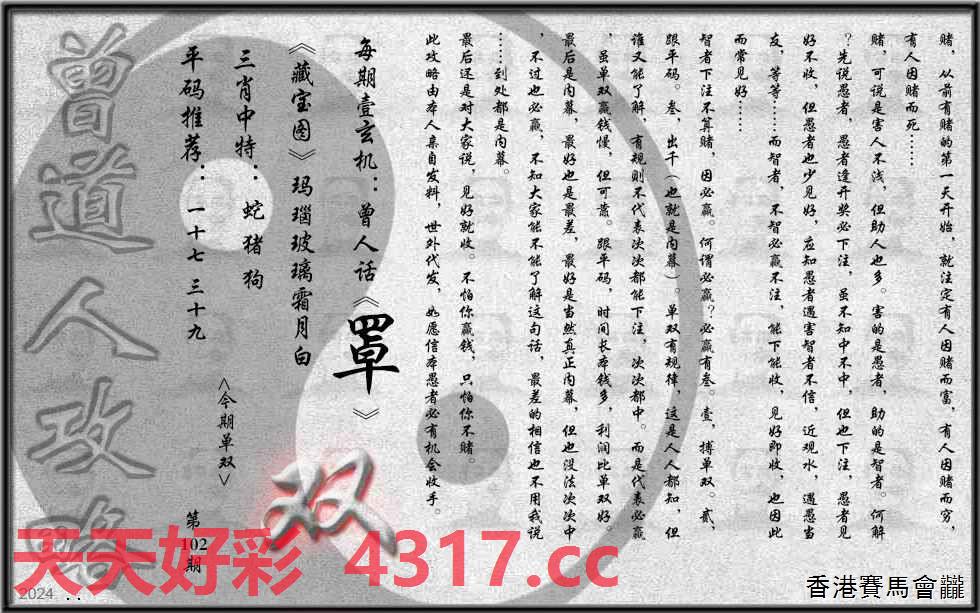 赌，从前有赌的第一天开始，就注定有人因赌而富，有人因赌而穷，
有人因赌而死……
赌，可说是害人不浅，但助人也多。害的是愚者，助的是智者。何解
？先说愚者，愚者逢开奖必下注，虽不知中不中，但也下注，愚者见
好不收，但愚者也少见好，应知愚者遇害智者不信，近观水，遇愚当
友，等等……而智者，不智必赢不注，能下能收，见好即收，也因此
而常见好……
智者下注不算赌，因必赢。何谓必赢？必赢有叁。壹，搏单双。贰，
跟平码。叁，出千（也就是内幕）。单双有规律，这是人人都知，但
谁又能了解，有规则不代表次次都能下注，次次都中。而是代表必赢
，虽单双赢钱慢，但可靠。跟平码，时间长本钱多，利润比单双好。
最后是内幕，最好也是最差，最好是当然真正内幕，但也没法次次中
，不过也必赢，不知大家能不能了解这句话，最差的相信也不用我说
……到处都是内幕。
最后还是对大家说，见好就收。不怕你赢钱，只怕你不赌。
此攻略由本人亲自发料，世外代发，如愿信本愚者必有机会收手。
每期壹玄机：曾人话《罩》
《藏宝图》玛瑙玻璃霜月白
三肖中特：蛇猪狗
平码推荐：一十七 三十九
<今期单双>
双
第102期
曾道人攻略
天天好彩 4317.cc
2024
香港賽馬會